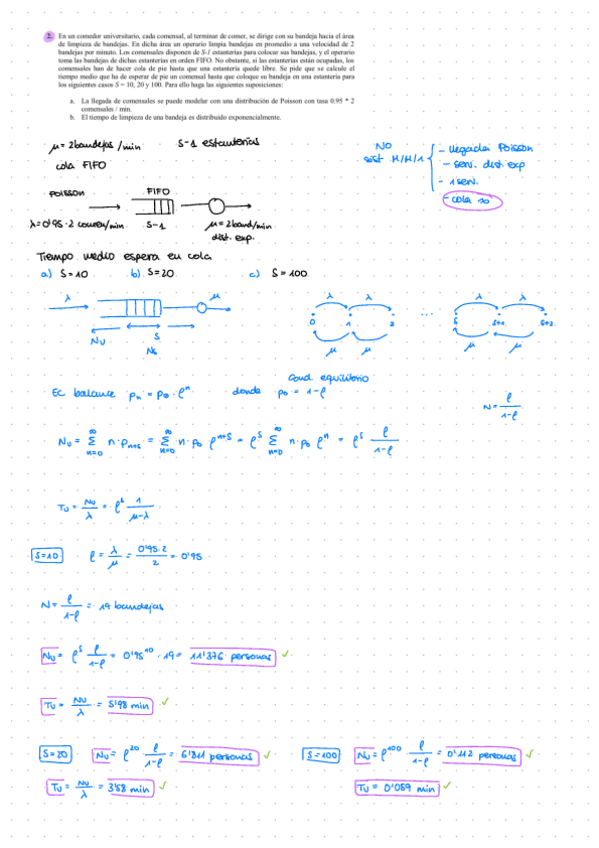 2. En un comedor universitario, cada comensal, al terminar de comer, se dirige con su bandeja hacia el área
de limpieza de bandejas. En dicha área un operario limpia bandejas en promedio a una velocidad de 2
bandejas por minuto. Los comensales disponen de S-1 estanterías para colocar sus bandejas, y el operario
toma las bandejas de dichas estanterías en orden FIFO. No obstante, si las estanterías están ocupadas, los
comensales han de hacer cola de pie hasta que una estantería quede libre. Se pide que se calcule el
tiempo medio que ha de esperar de pie un comensal hasta que coloque su bandeja en una estantería para
los siguientes casos S = 10, 20 y 100. Para ello haga las siguientes suposiciones:
a. La llegada de comensales se puede modelar con una distribución de Poisson con tasa 0.95 * 2
comensales / min.
b. El tiempo de limpieza de una bandeja es distribuido exponencialmente.
μ = 2bandejas/min S-1 estanterías
cola FIFO
NO
sist M/M/1
- llegada Poisson
- serv. dist exp
- 1 serv.
- cola ∞
POISSON FIFO
λ=0'95·2 comen/min. S-1 μ=2band/min
dist. exp.
Tiempo medio espera en cola
a) S=10 b) S=20. c) S=100
λ μ λ λ λ λ
0 1 2 ... S S+1 S+2
Nu S μ μ μ μ
Ns
Cond equilibrio
Ec balance pn = p0·ρ^n. donde p0 = 1-ρ
N = ρ/(1-ρ)
Nu = Σ(n=0, ∞) n·pn+s = Σ(n=0, ∞) n·p0 ρ^(n+s) = ρ^s Σ(n=0, ∞) n·p0 ρ^n = ρ^s ρ/(1-ρ)
Tu = Nu/λ = ρ^s 1/(μ-λ)
S=10 ρ = λ/μ = 0'95·2/2 = 0'95
N = ρ/(1-ρ) = 19 bandejas
Nu = ρ^s ρ/(1-ρ) = 0'95^10 · 19 = 11'376 personas ✓
Tu = Nu/λ = 5'98 min ✓
S=20 Nu = ρ^20 · ρ/(1-ρ) = 6'811 personas ✓
Tu = Nu/λ = 3'58 min ✓
S=100 Nu = ρ^100 · ρ/(1-ρ) = 0'112 personas ✓
Tu = 0'059 min ✓